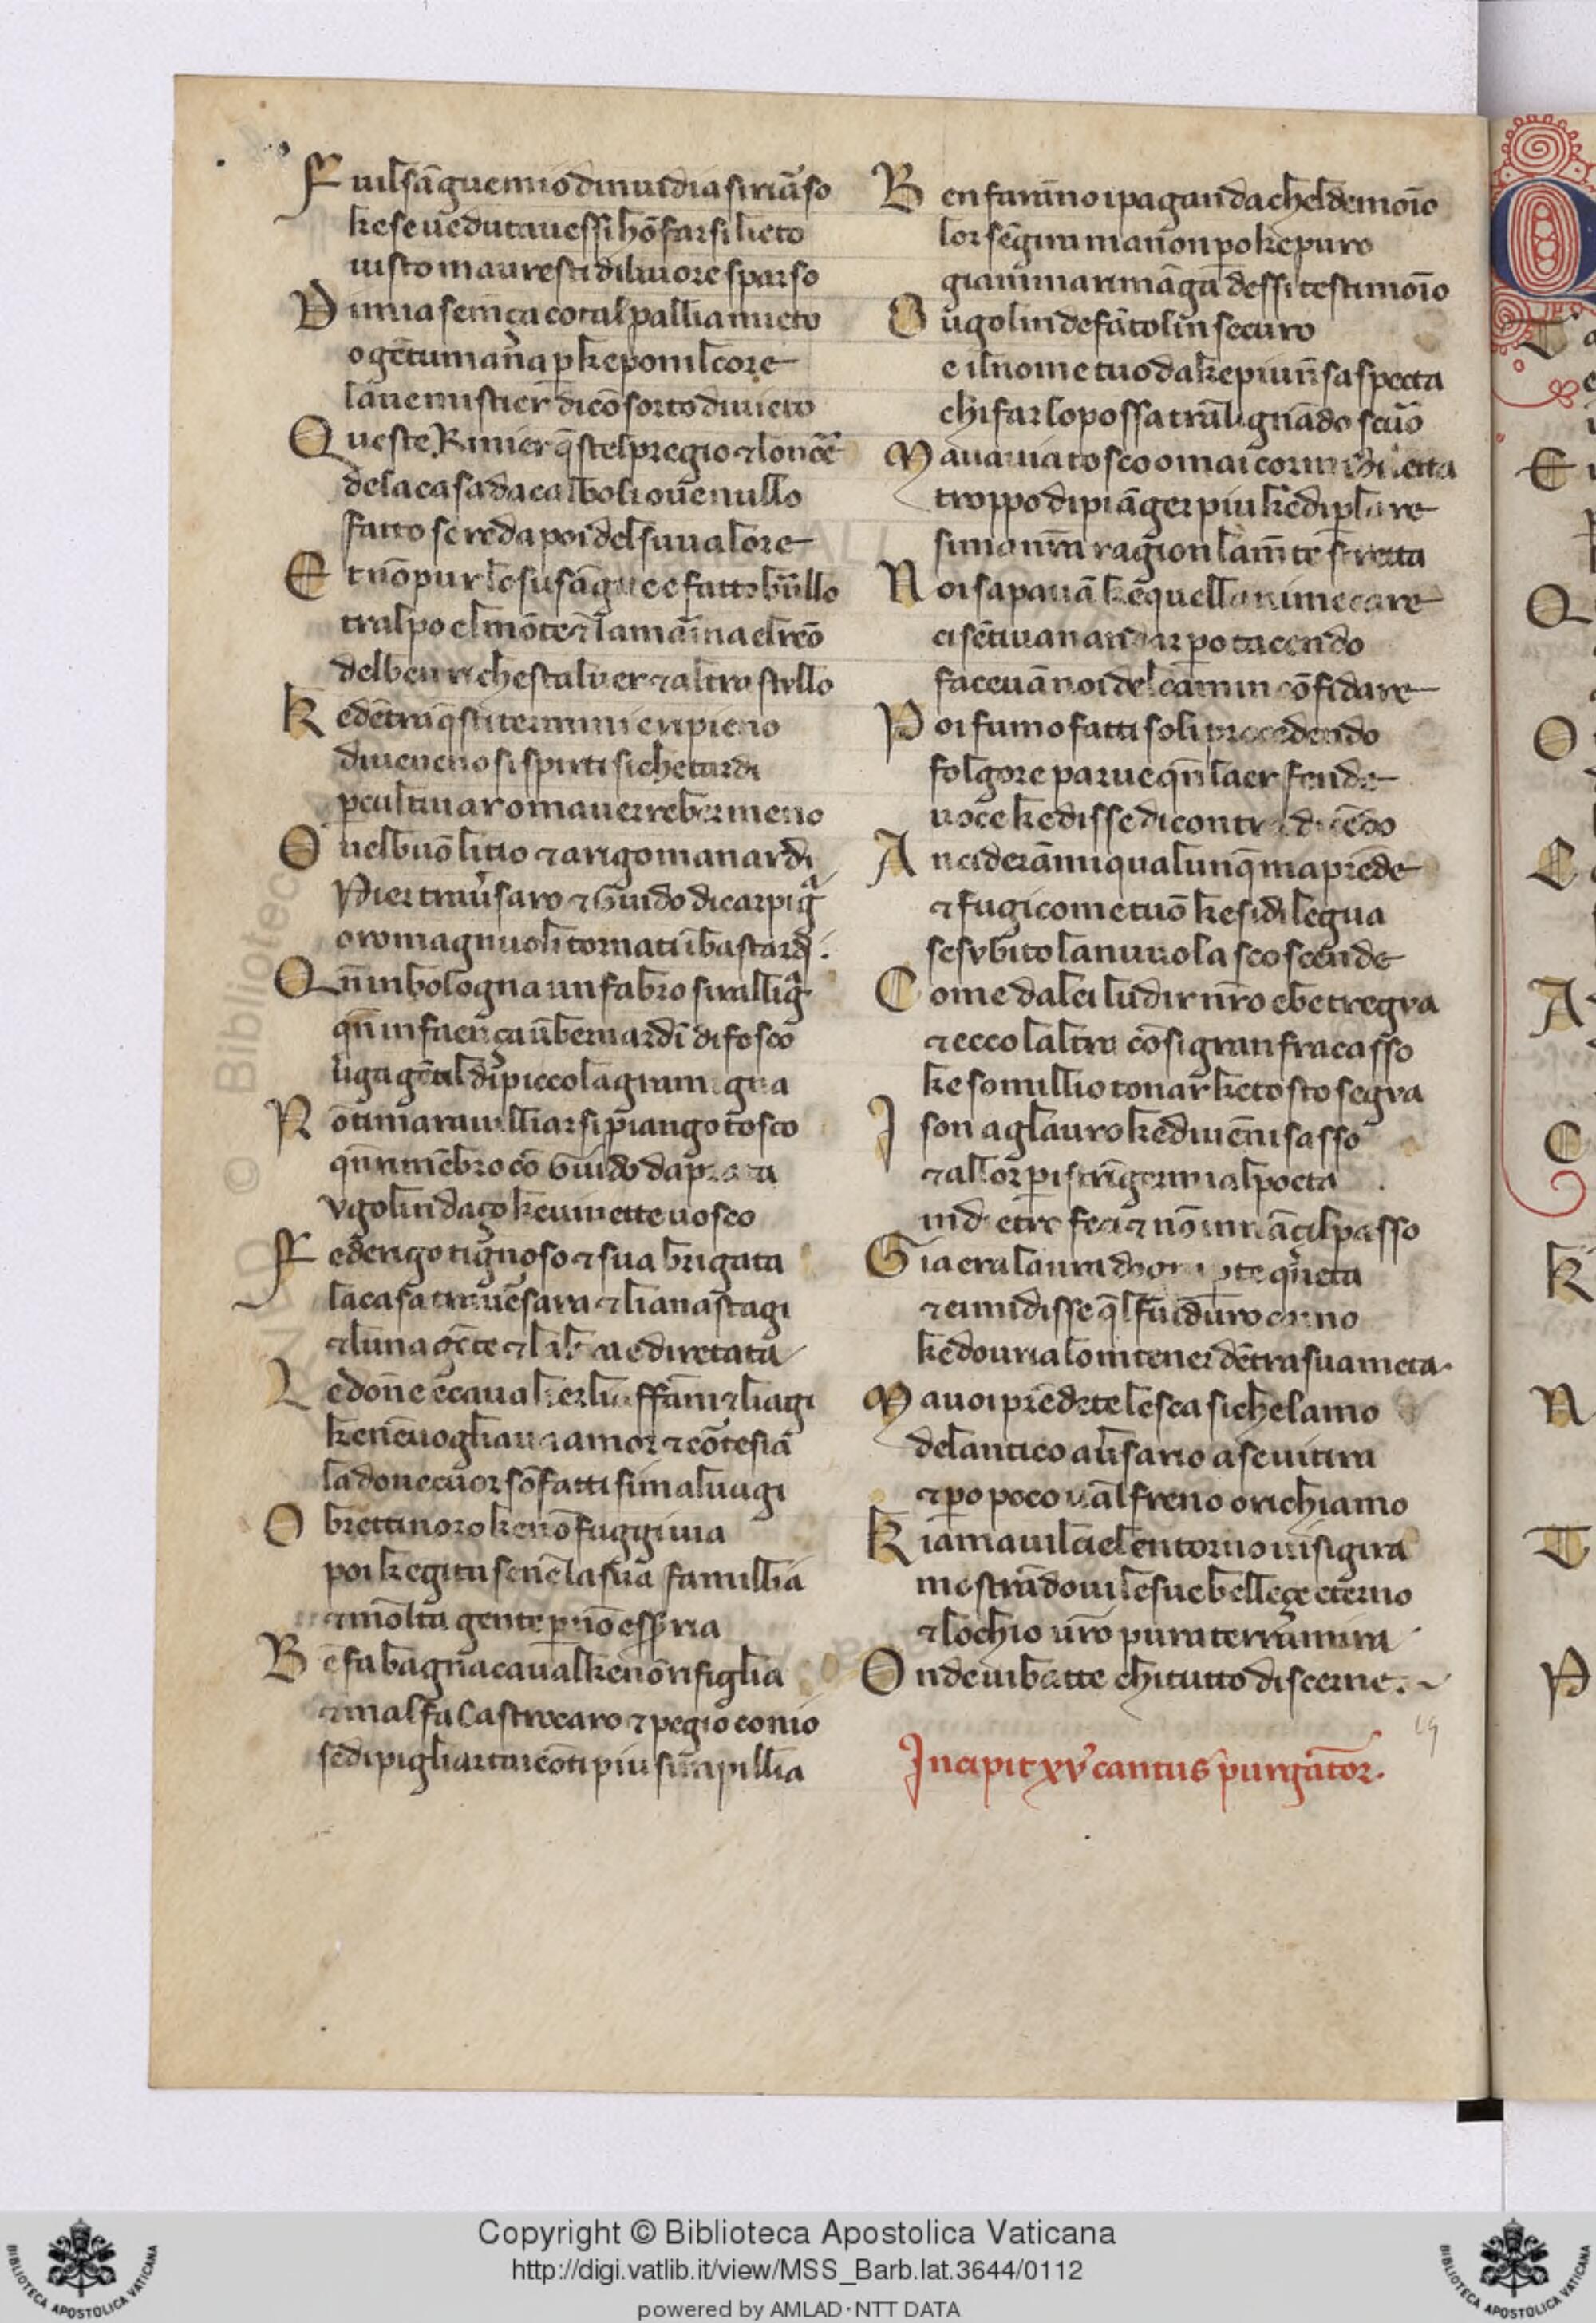 Fuil sāgue mio dinuidia si riārso
ke se ueduto auessi hō farsi lieto
uisto maureste di liuore sparso
Di mia semēça cotal pallia mieto
o gēte umana pke poni l core
la ue mistier di cōsorto diuieto
Queste Rinier q̄ste l pregio ⁊ lonore
de la casa da calboli oue nullo
fatto se reda poi del su ualore
Et nō pur lo su sāgue e fatto brullo
tra l po el mōte ⁊ la marina el reno
del ben richesto al uer ⁊ al trastullo
Ke dētra q̄sti termini e ripieno
di uenenosi spirti si che tardi
p cultiuar omai uerrebber meno
Ou el buō litio ⁊ arigo manardi
Pier trauersaro ⁊ Guido di carpigna
o romagnuoli tornati ī bastardi.
Qn̄ in bologna un fabro si ralligna
qn̄ in faença ū bernardī di fosco
uiga gētil di picciola gramigna
Nō ti marauilliar si piango tosco
qn̄ rimēbro cō Guido da prata
vgolin daço ke uiuette uosco
Federigo tignoso ⁊ sua brigata
la casa trauesara ⁊ li anastagi
⁊ luna gēte ⁊ laltra e diretata
Le dōne e caualier li affāni ⁊ li agi
ke nēuogliaua amor ⁊ cortesia
la doue cuor sō fatti si maluagi
O brettinoro ke nō fuggi uia
poi ke gita se nē la sua famillia
⁊ molta gente p nō esser ria
Bē fa bagnacaual ke nō rifiglia
⁊ mal fa Castrocaro ⁊ pegio conio
se di pigliar tai cōti piu simpillia
Ben farāno i pagan da chel demonio
lor sen gira ma non po ke puro
giammai rimāga dessi testimonio
O ugolin de fātolin securo
e il nome tuo da ke piu nō saspecta
chi far lo possa tralignādo scuro
Ma ua uia tosco omai cor mi diletta
troppo di piāger piu ke di parlare
si ma nrā ragion la mēte stretta
Noi sapauā ke quell anime care
ci sētiuan andar po tacendo
faceuā noi del camin cōfidare
Poi fumo fatti soli procedendo
folgore parue qn̄ laer fende
uoce ke disse di contra dicēdo
Anciderāmi qualunq̄ maprēde
⁊ fugi come tuō ke si dilegua
se svbito la nuuola scoscende
Come da lei ludir nr̄o ebe tregva
⁊ ecco laltra cō si gran fracasso
ke somillio tonar ke tosto segva
I son aglauro ke diuēni sasso
⁊ allor p istrīgermi al poeta
indietro feci ⁊ nō inrāçi l passo
Gia era laura dogni pte queta
⁊ ei mi disse q̄l fu i duro camo
ke douria lom tener dētra sua meta.
Ma uoi prēdete lesca si che lamo
de lantico auersario a se ui tira
⁊ po poco ual freno o richiamo
Kiamaui l ciel e ntorno ui si gira
mostrādoui le sue belleçe eterno
⁊ lochio ur̄o pur a terra mira
Onde ui batte chi tutto discerne.
19
Incipit xv cantus purgator.
Copyright © Biblioteca Apostolica Vaticana
http://digi.vatlib.it/view/MSS_Barb.lat.3644/0112
powered by AMLAD·NTT DATA
BIBLIOTECA APOSTOLICA VATICANA
BIBLIOTECA APOSTOLICA VATICANA